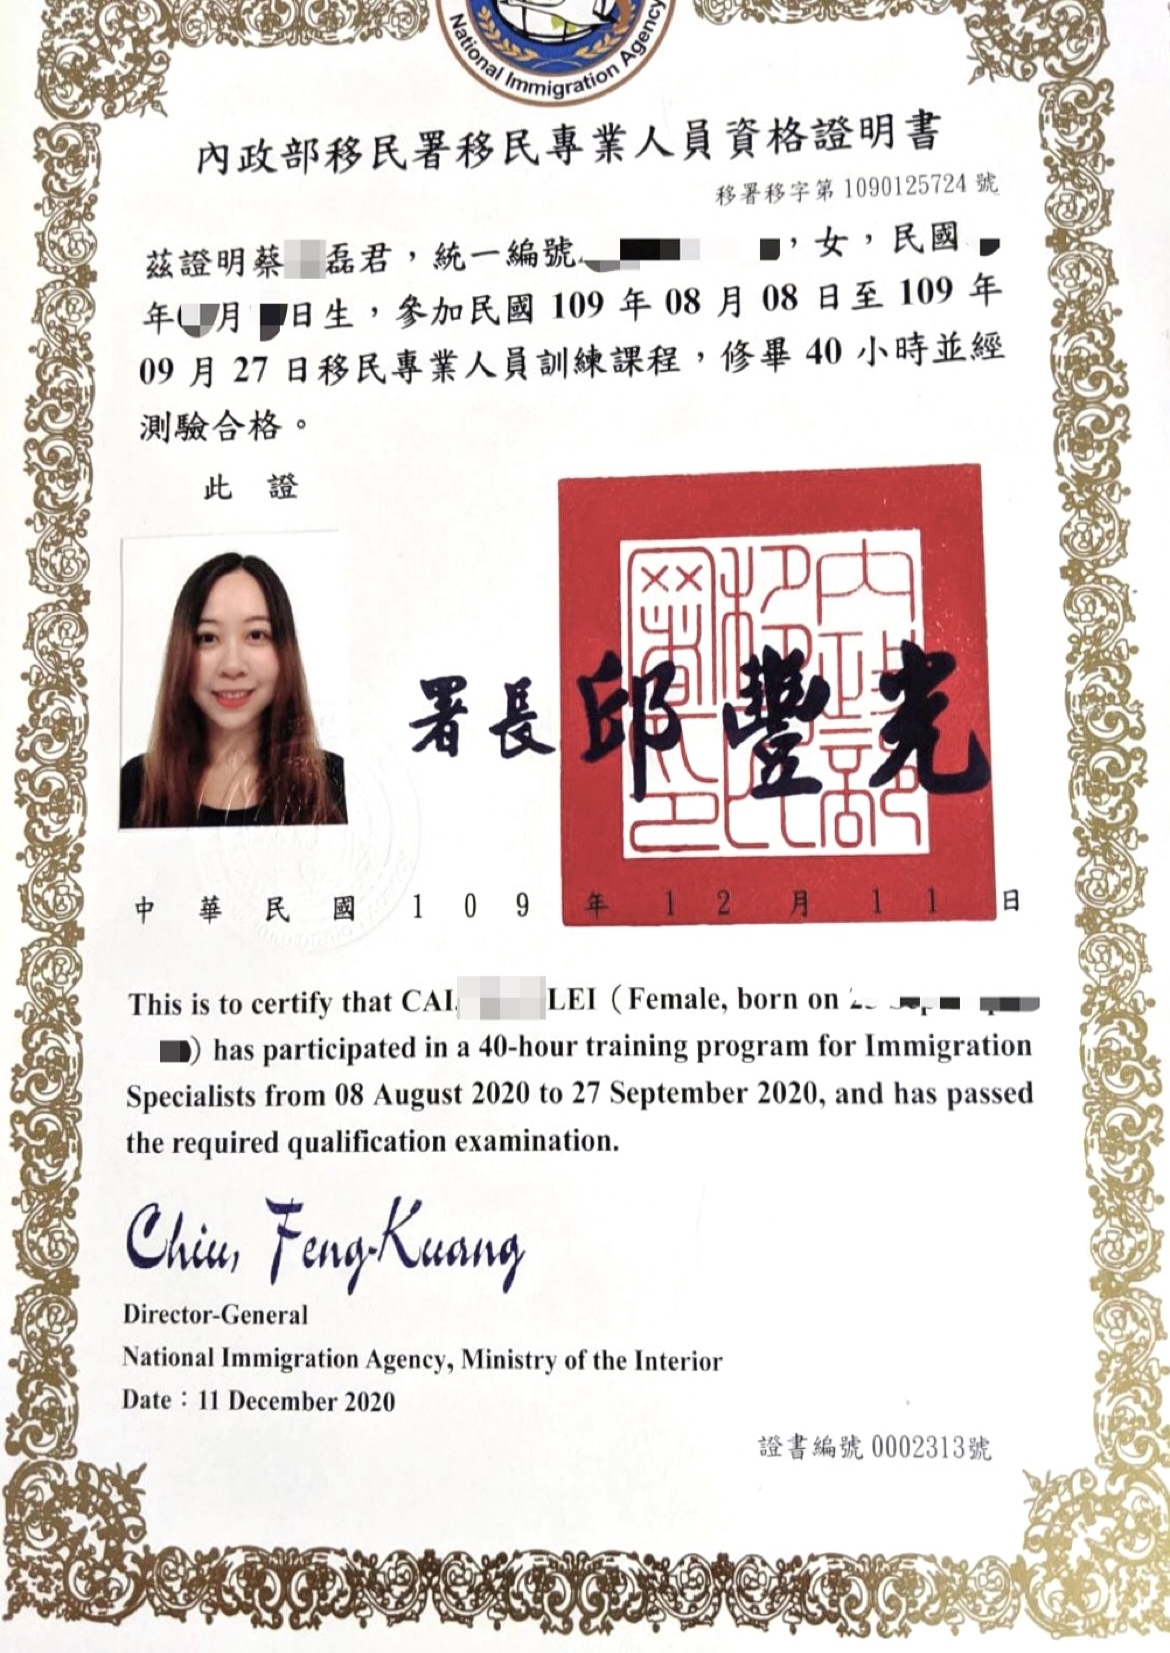 National Immigration Agency
內政部移民署移民專業人員資格證明書
移署移字第1090125724號
茲證明蔡 磊君，統一編號 ，女，民國
年 月 日生，參加民國 109 年 08 月 08 日至 109 年
09 月 27 日移民專業人員訓練課程，修畢 40 小時並經
測驗合格。
此 證
內政部移民署印
署長 邱豐光
中華民國 109 年 12 月 11 日
This is to certify that CAI, LEI（Female, born on
) has participated in a 40-hour training program for Immigration
Specialists from 08 August 2020 to 27 September 2020, and has passed
the required qualification examination.
Chiu, Feng-Kuang
Director-General
National Immigration Agency, Ministry of the Interior
Date：11 December 2020
證書編號 0002313號